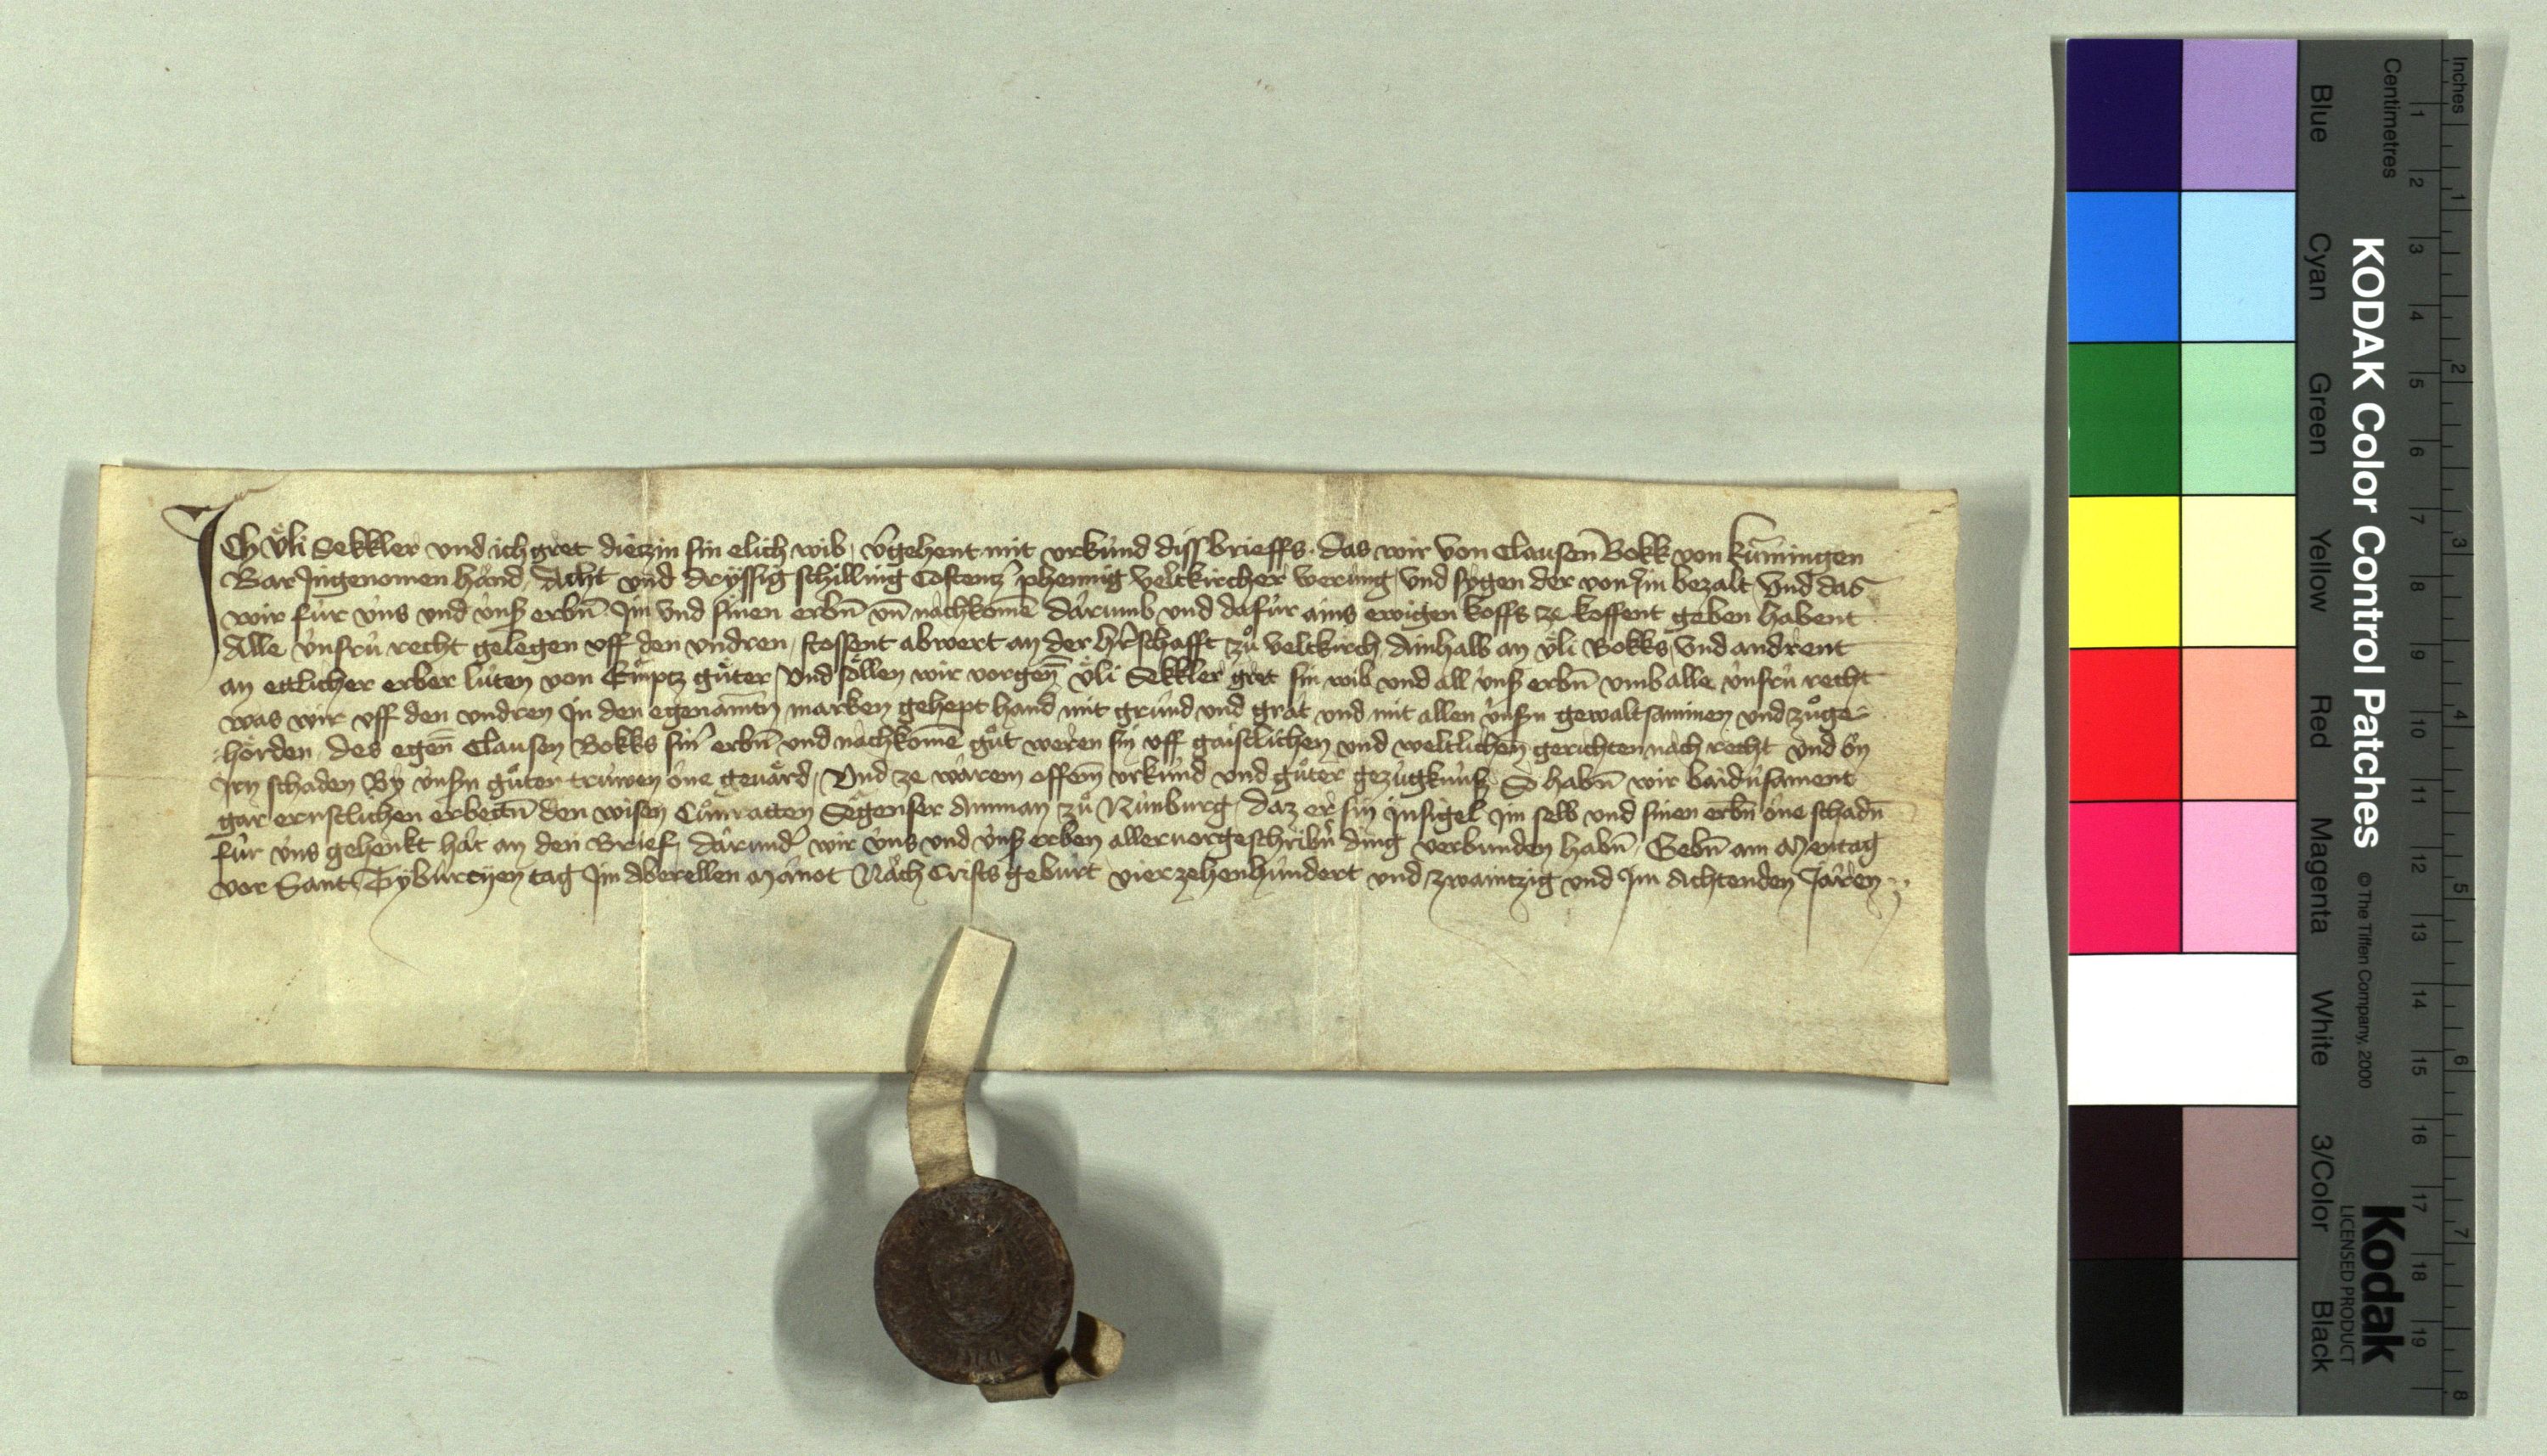 Ich Ŭli Sekkler und ich gret dietzin sin elich wib, v̄gehent mit urkund diss brieffs. das wir von Clausen Bokk von kum̄ingen
Bar Ingenomen hand, Acht und dryssig schilling Costentz' phennig veltkircher werung, und sygen der von im bezalt Und das
wir für úns und únsz erbn̄ Im und sinen erbn̄ un̄ nachkomē darumb und dafúr ains ewigen koffs ze koffent geben habent
Alle únsrú recht gelegen uff den undren, stossent abwert an der h'schafft zů veltkirch, Ainhalb an ůli Bokks, Und andrent
an ettlicher erber lúten von Emptz gůter, Und söllen wir vorgen̄ ůli Sekkler gret sin wib und all únsz erbn̄ umb alle únsrú recht
was wir uff den undren In den egenamtn̄ marken gehept hand mit grund und grat und mit allen únsrn gewaltsaminen und zůge-
hörden, des egen̄ Clausen Bokks sin' erbn̄ und nachkomē gůt weren sin uff gaistlichen und weltlichen gerichten nach recht und on
Irn schaden By únsrn gůten trúwen one geuärd, Und ze warem offem̄ urkund und gůter gezúgknúsz So habn̄ wir baidúsament
gar ernstlichen erbettn̄ den wisen Cůnratten Sägenser Amman zů Núnburg, daz er sin Insigel im selb und sinen erbn̄ one schadn̄
für úns gehenkt hat an den Brief, darund' wir úns und únsz erben aller vorgeschribn' ding verbunden habn̄, Gebn̄ am Mentag
vor Sant Tyburcyen tag Im Aberellen Manot Nach Crists geburt vierzehenhundert und zwaintzig und Im Achtenden Jaren
Inches
Centimetres
KODAK Color Control Patches
© The Tiffen Company, 2000
Kodak
LICENSED PRODUCT
Blue
Cyan
Green
Yellow
Red
Magenta
White
3/Color
Black
1 2 3 4 5 6 7 8 9 10 11 12 13 14 15 16 17 18 19
1 2 3 4 5 6 7 8